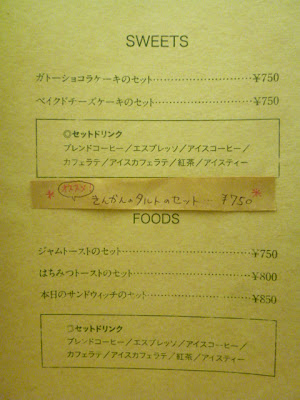 SWEETS
ガトーショコラケーキのセット……………¥750
ベイクドチーズケーキのセット……………¥750
◎セットドリンク
ブレンドコーヒー／エスプレッソ／アイスコーヒー／
カフェラテ／アイスカフェラテ／紅茶／アイスティー
オススメ
きんかんのタルトのセット… ¥750
FOODS
ジャムトーストのセット……………¥750
はちみつトーストのセット……………¥800
本日のサンドウィッチのセット……………¥850
◎セットドリンク
ブレンドコーヒー／エスプレッソ／アイスコーヒー／
カフェラテ／アイスカフェラテ／紅茶／アイスティー